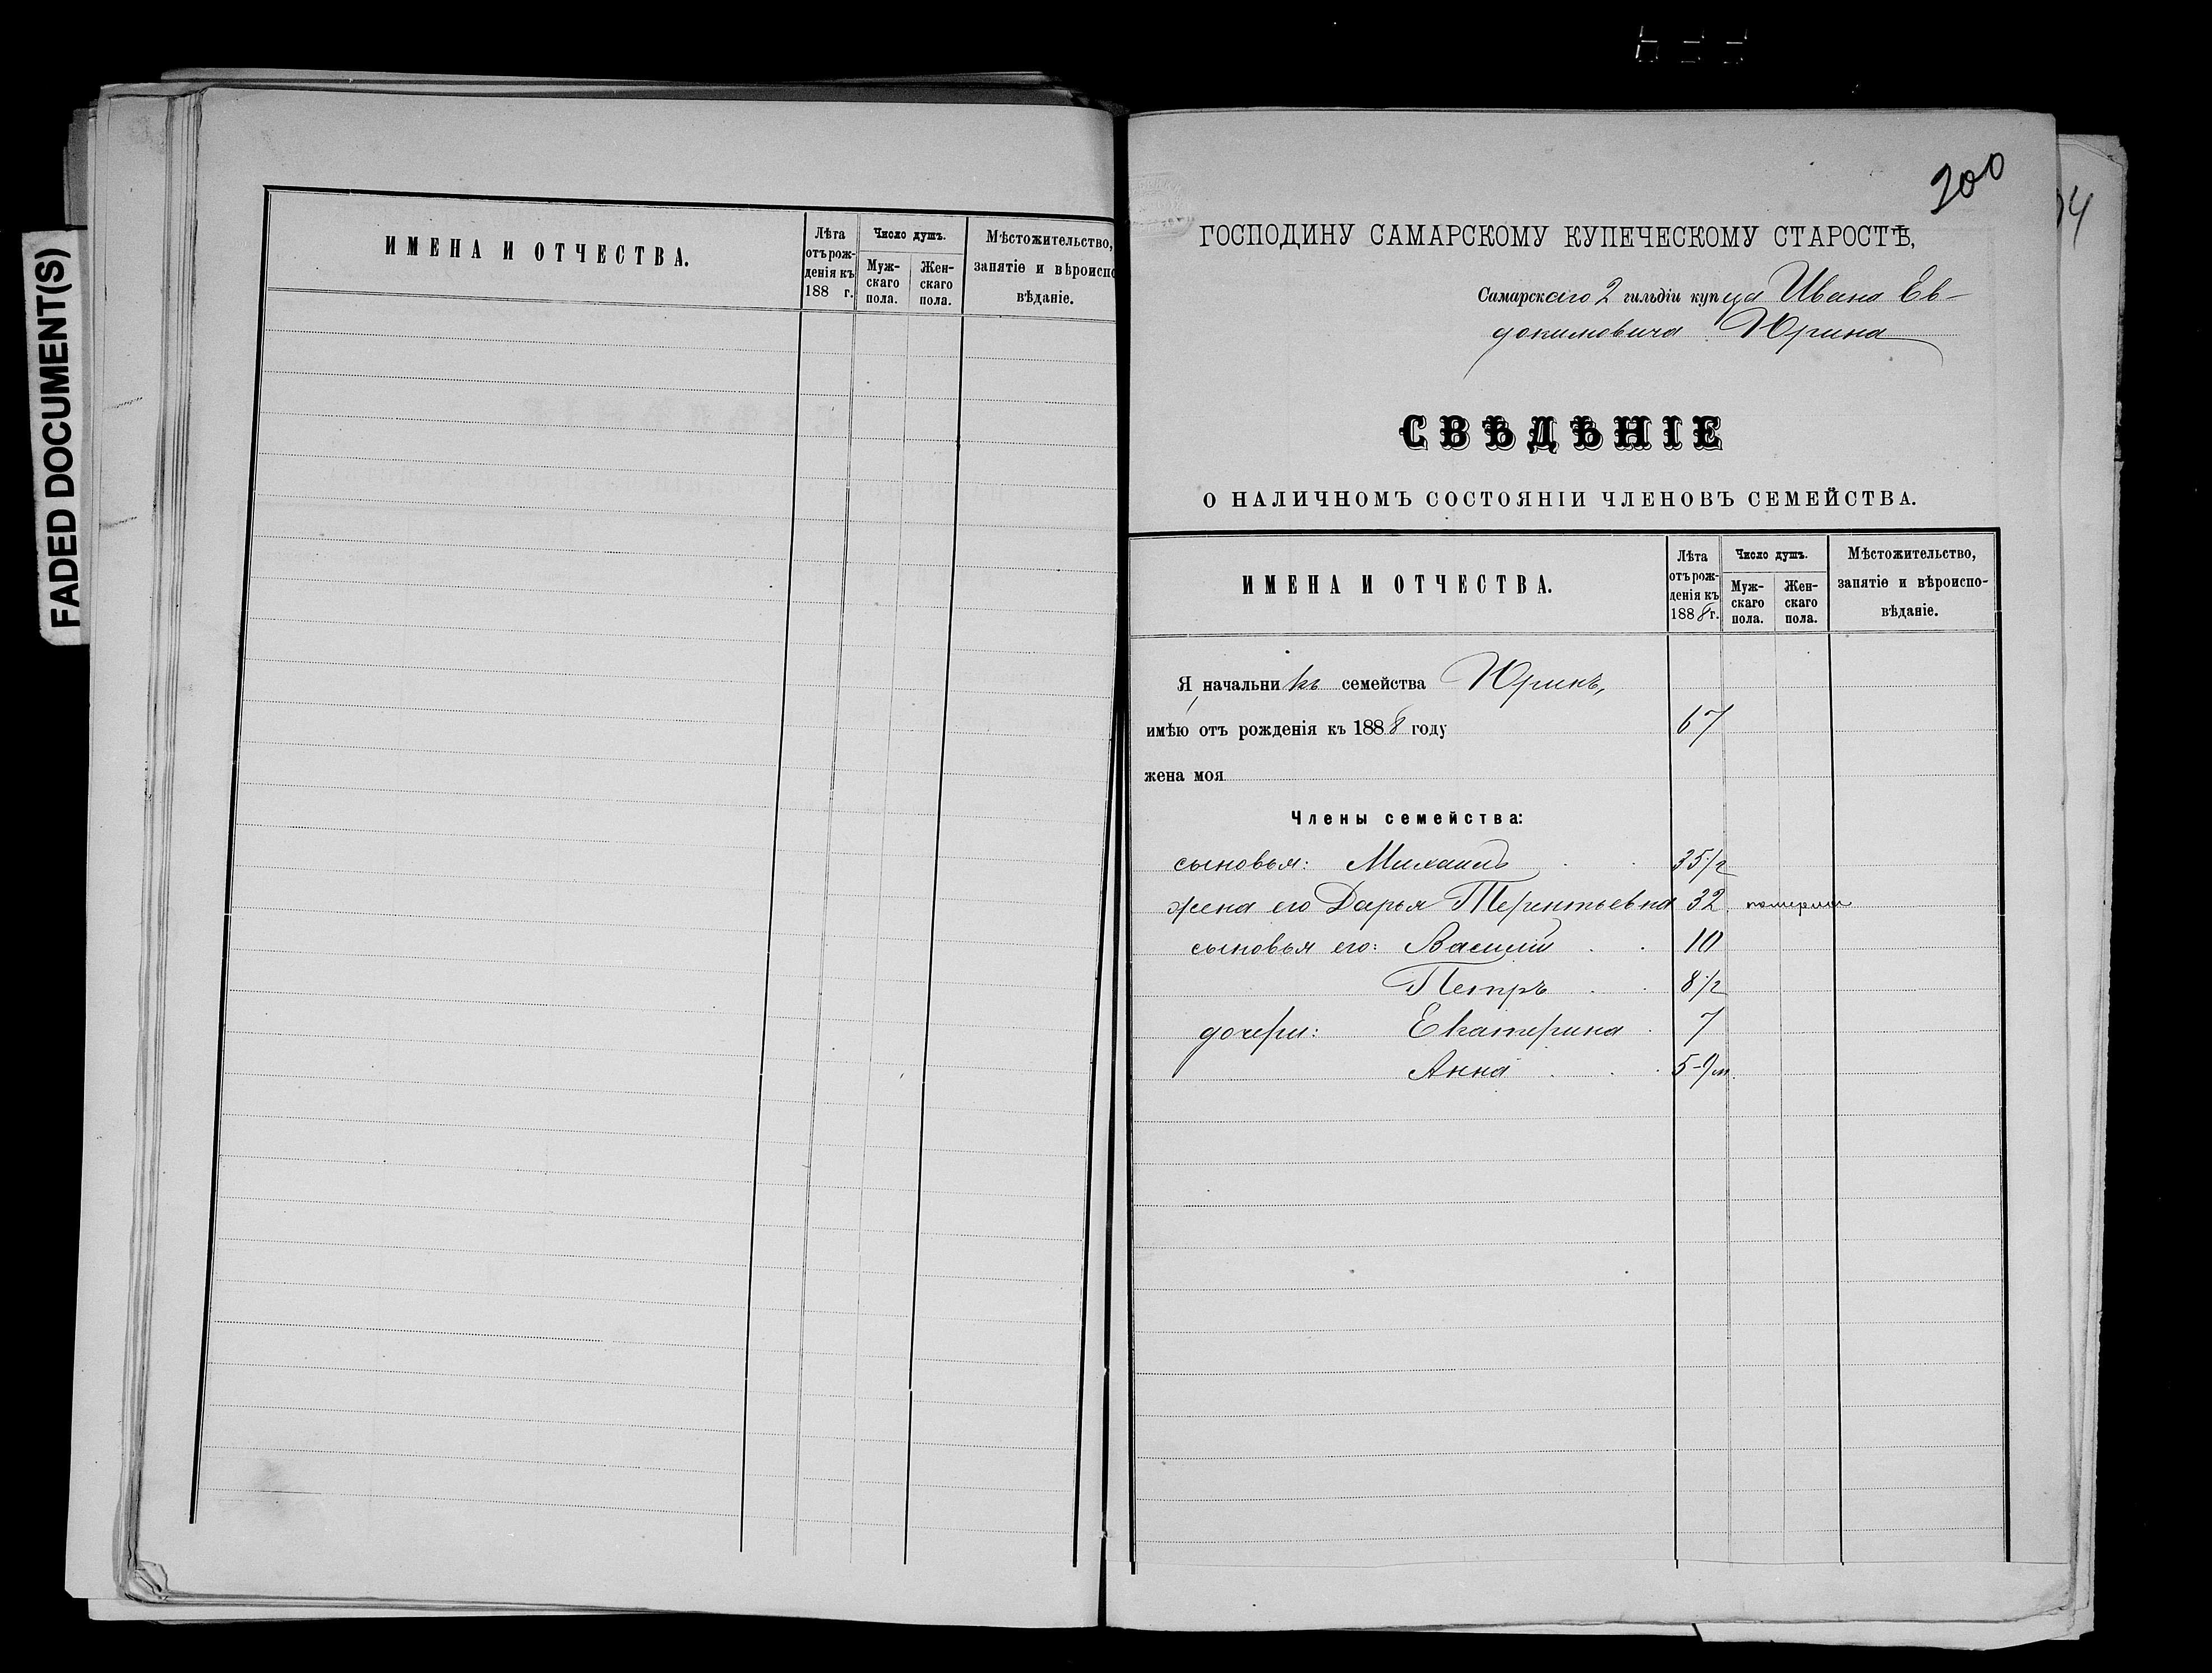 FADED DOCUMENT(S)
ИМЕНА И ОТЧЕСТВА.
Лѣта
отъ рож-
денія къ
188 г.
Число душъ.
Муж-
скаго
пола.
Жен-
скаго
пола.
Мѣстожительство,
занятіе и вѣроиспо
вѣданіе.
200
ГОСПОДИНУ САМАРСКОМУ КУПЕЧЕСКОМУ СТАРОСТѢ,
Самарскаго 2 гильдіи купца Ивана Ев-
докимовича Юрина
СВѢДѢНІЕ
О НАЛИЧНОМЪ СОСТОЯНІИ ЧЛЕНОВЪ СЕМЕЙСТВА.
ИМЕНА И ОТЧЕСТВА.
Лѣта
отъ рож-
денія къ
1888 г.
Число душъ.
Муж-
скаго
пола.
Жен-
скаго
пола.
Мѣстожительство,
занятіе и вѣроиспо-
вѣданіе.
Я, начальникъ семейства Юринъ,
имѣю отъ рожденія къ 1888 году 67
жена моя
Члены семейства:
сыновья: Михаилъ 35 1/2
жена его Дарья Терентьевна 32 померла
сыновья его: Василій 10
Петръ 8 1/2
дочери: Екатерина 7
Анна